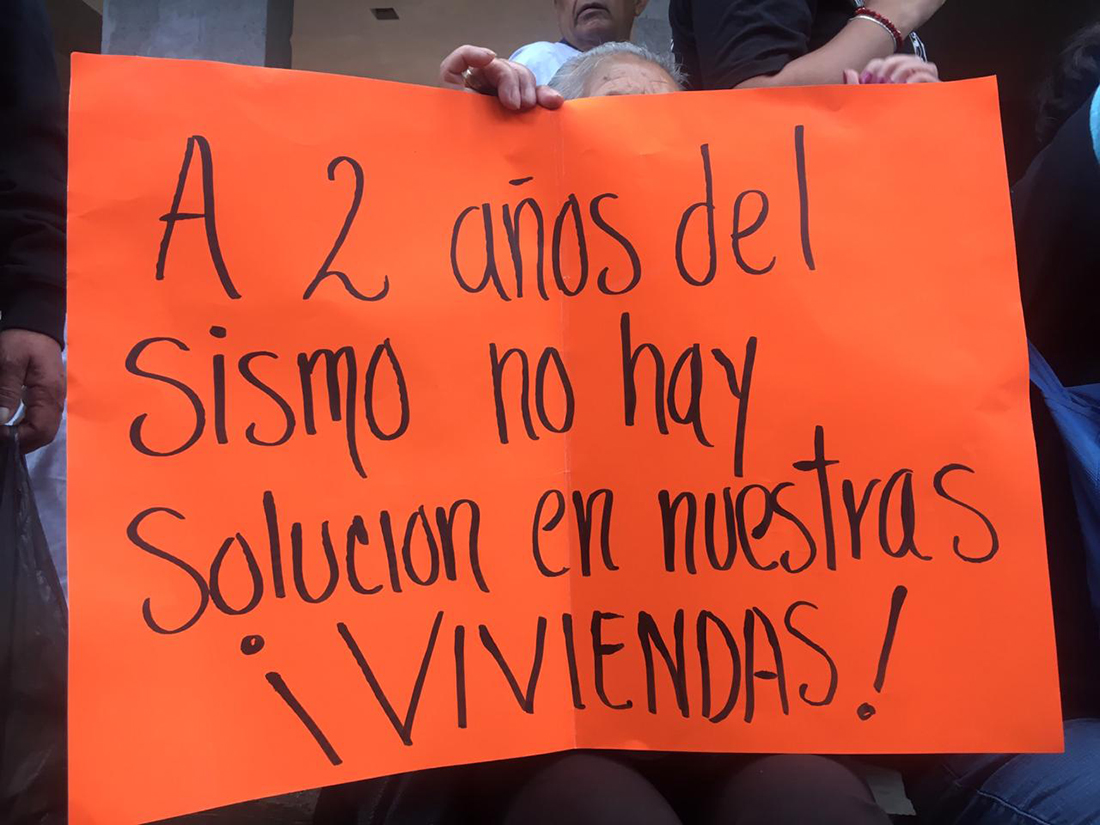 A 2 años del
sismo no hay
Solucion en nuestras
¡VIVIENDAS!